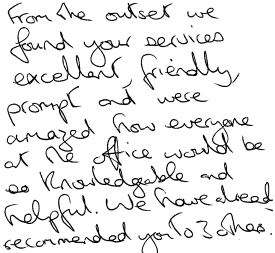 From the outset we
found your services
excellent, friendly,
prompt and were
amazed how everyone
at the office would be
so knowledgable and
helpful. We have alread
recommended you to 3 others.